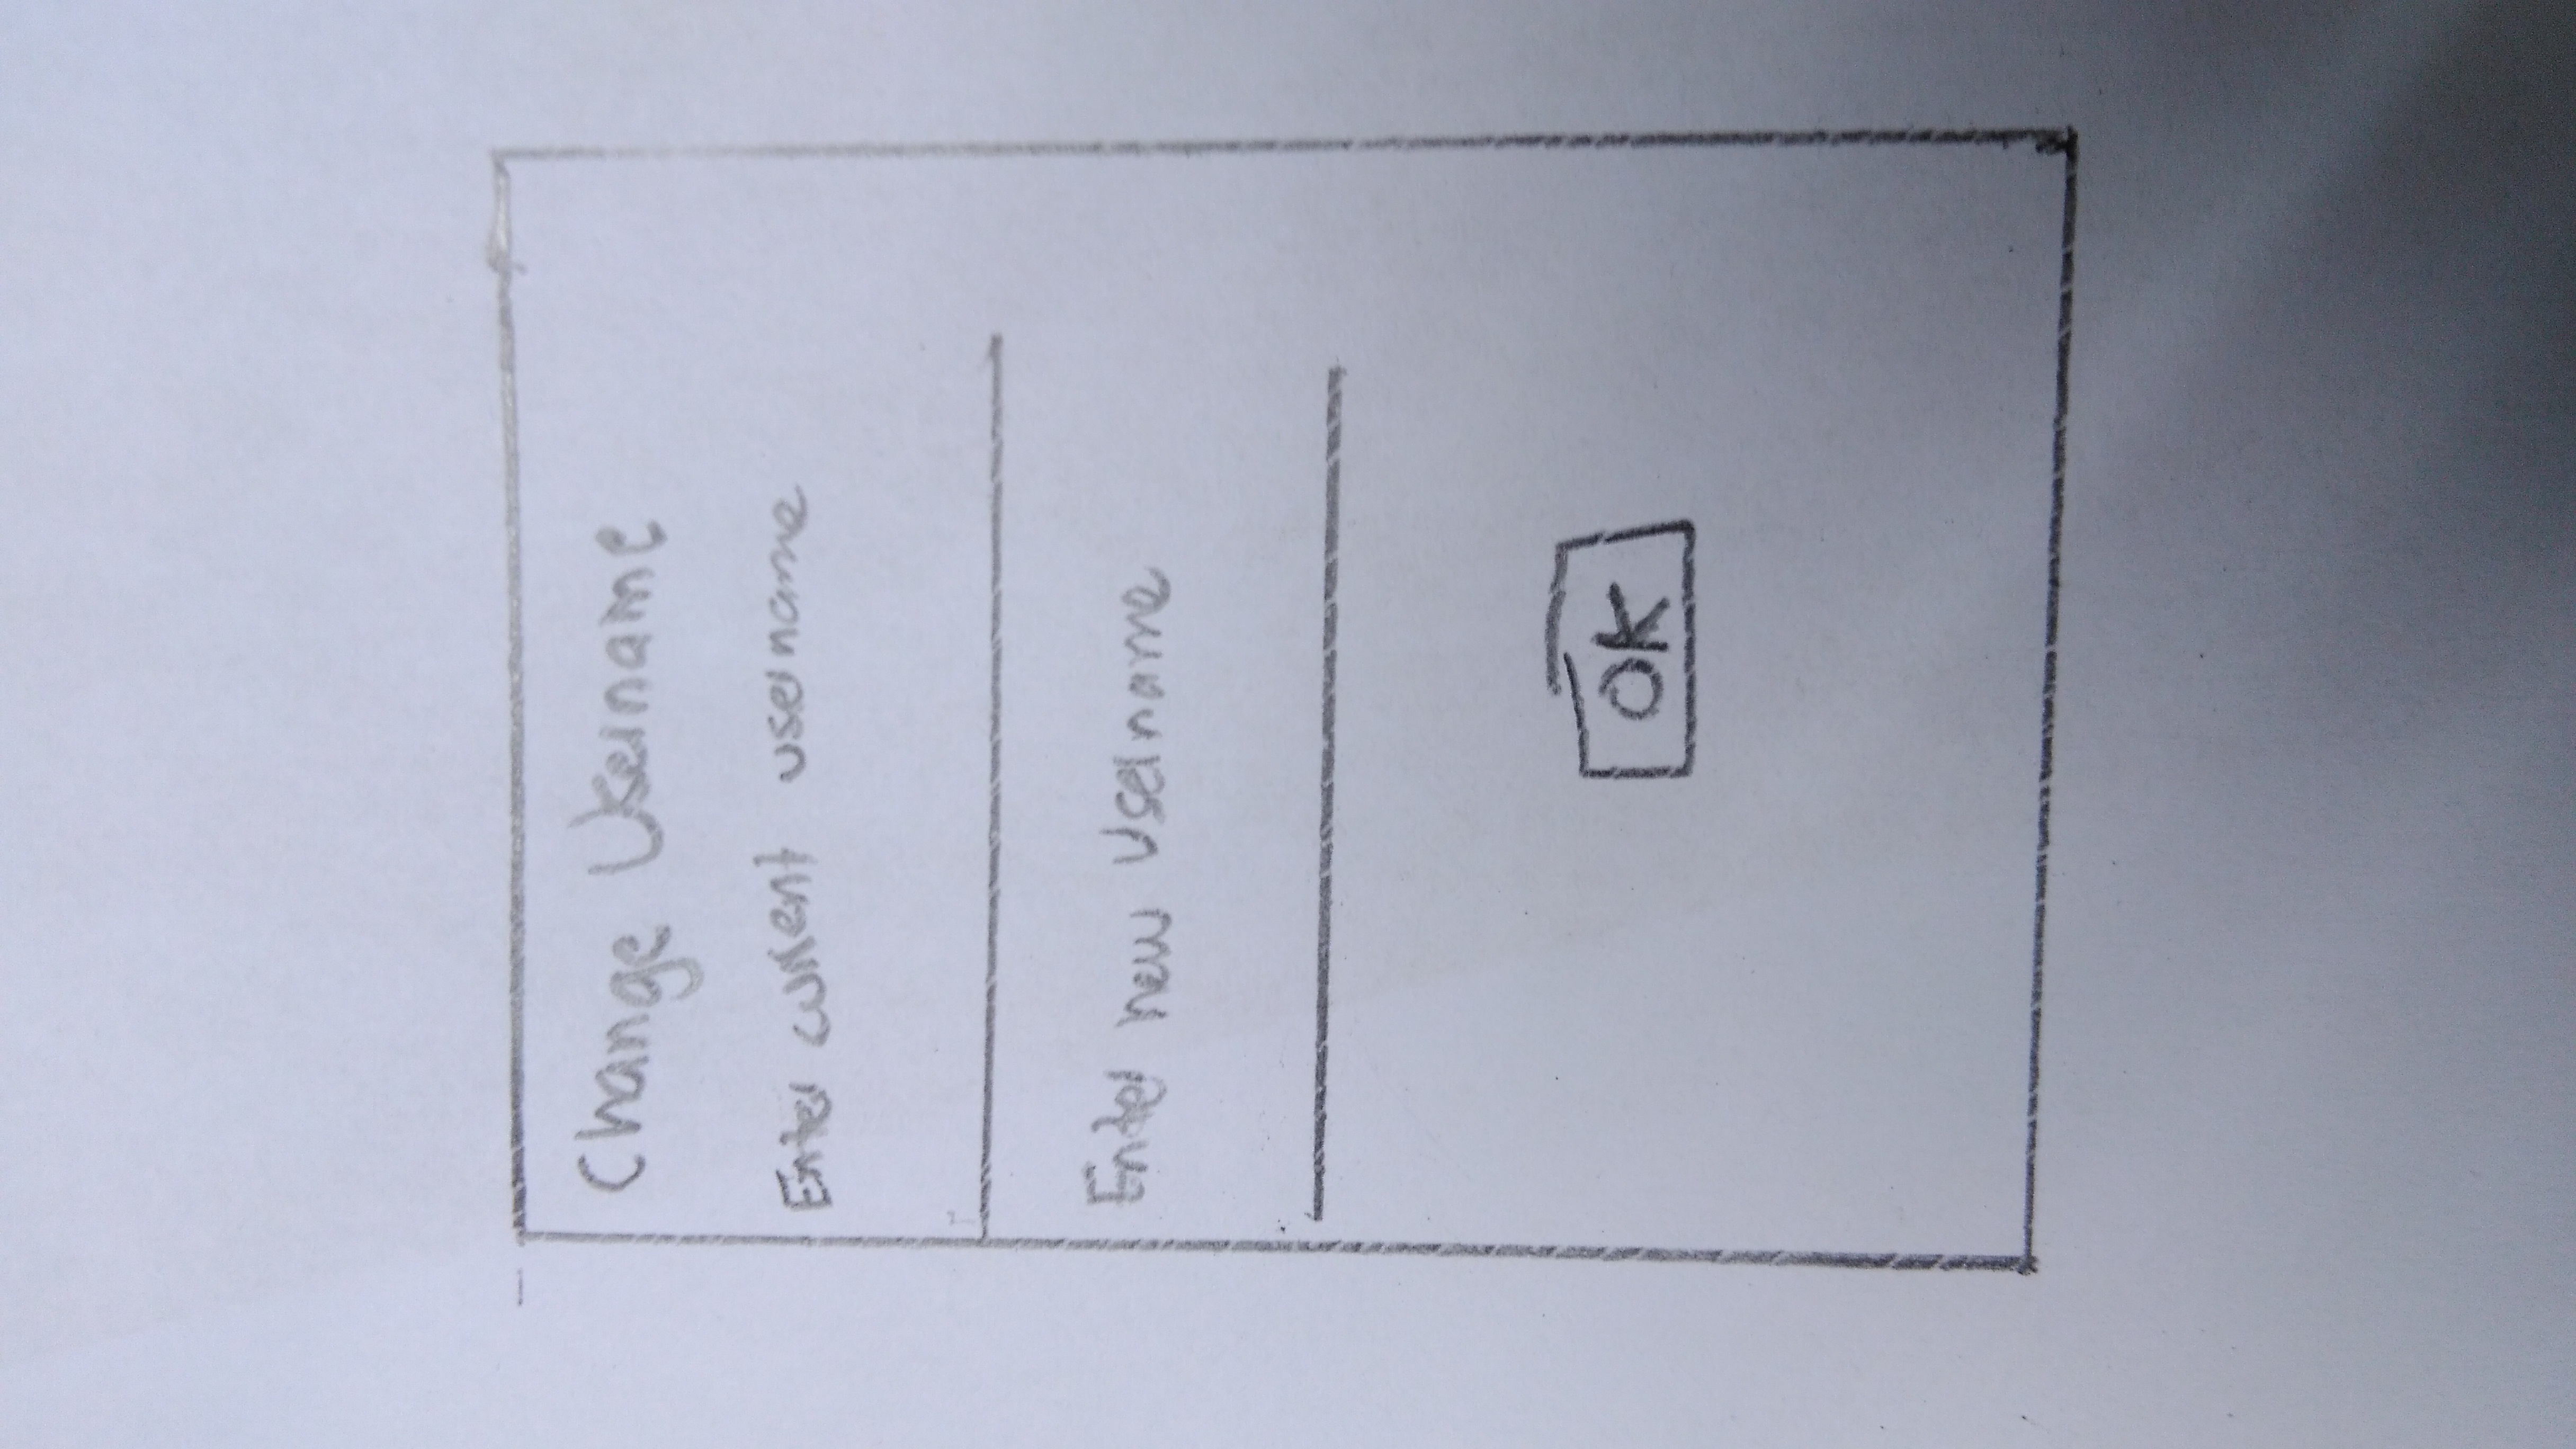 Change Username
Enter current username
Enter new username
OK